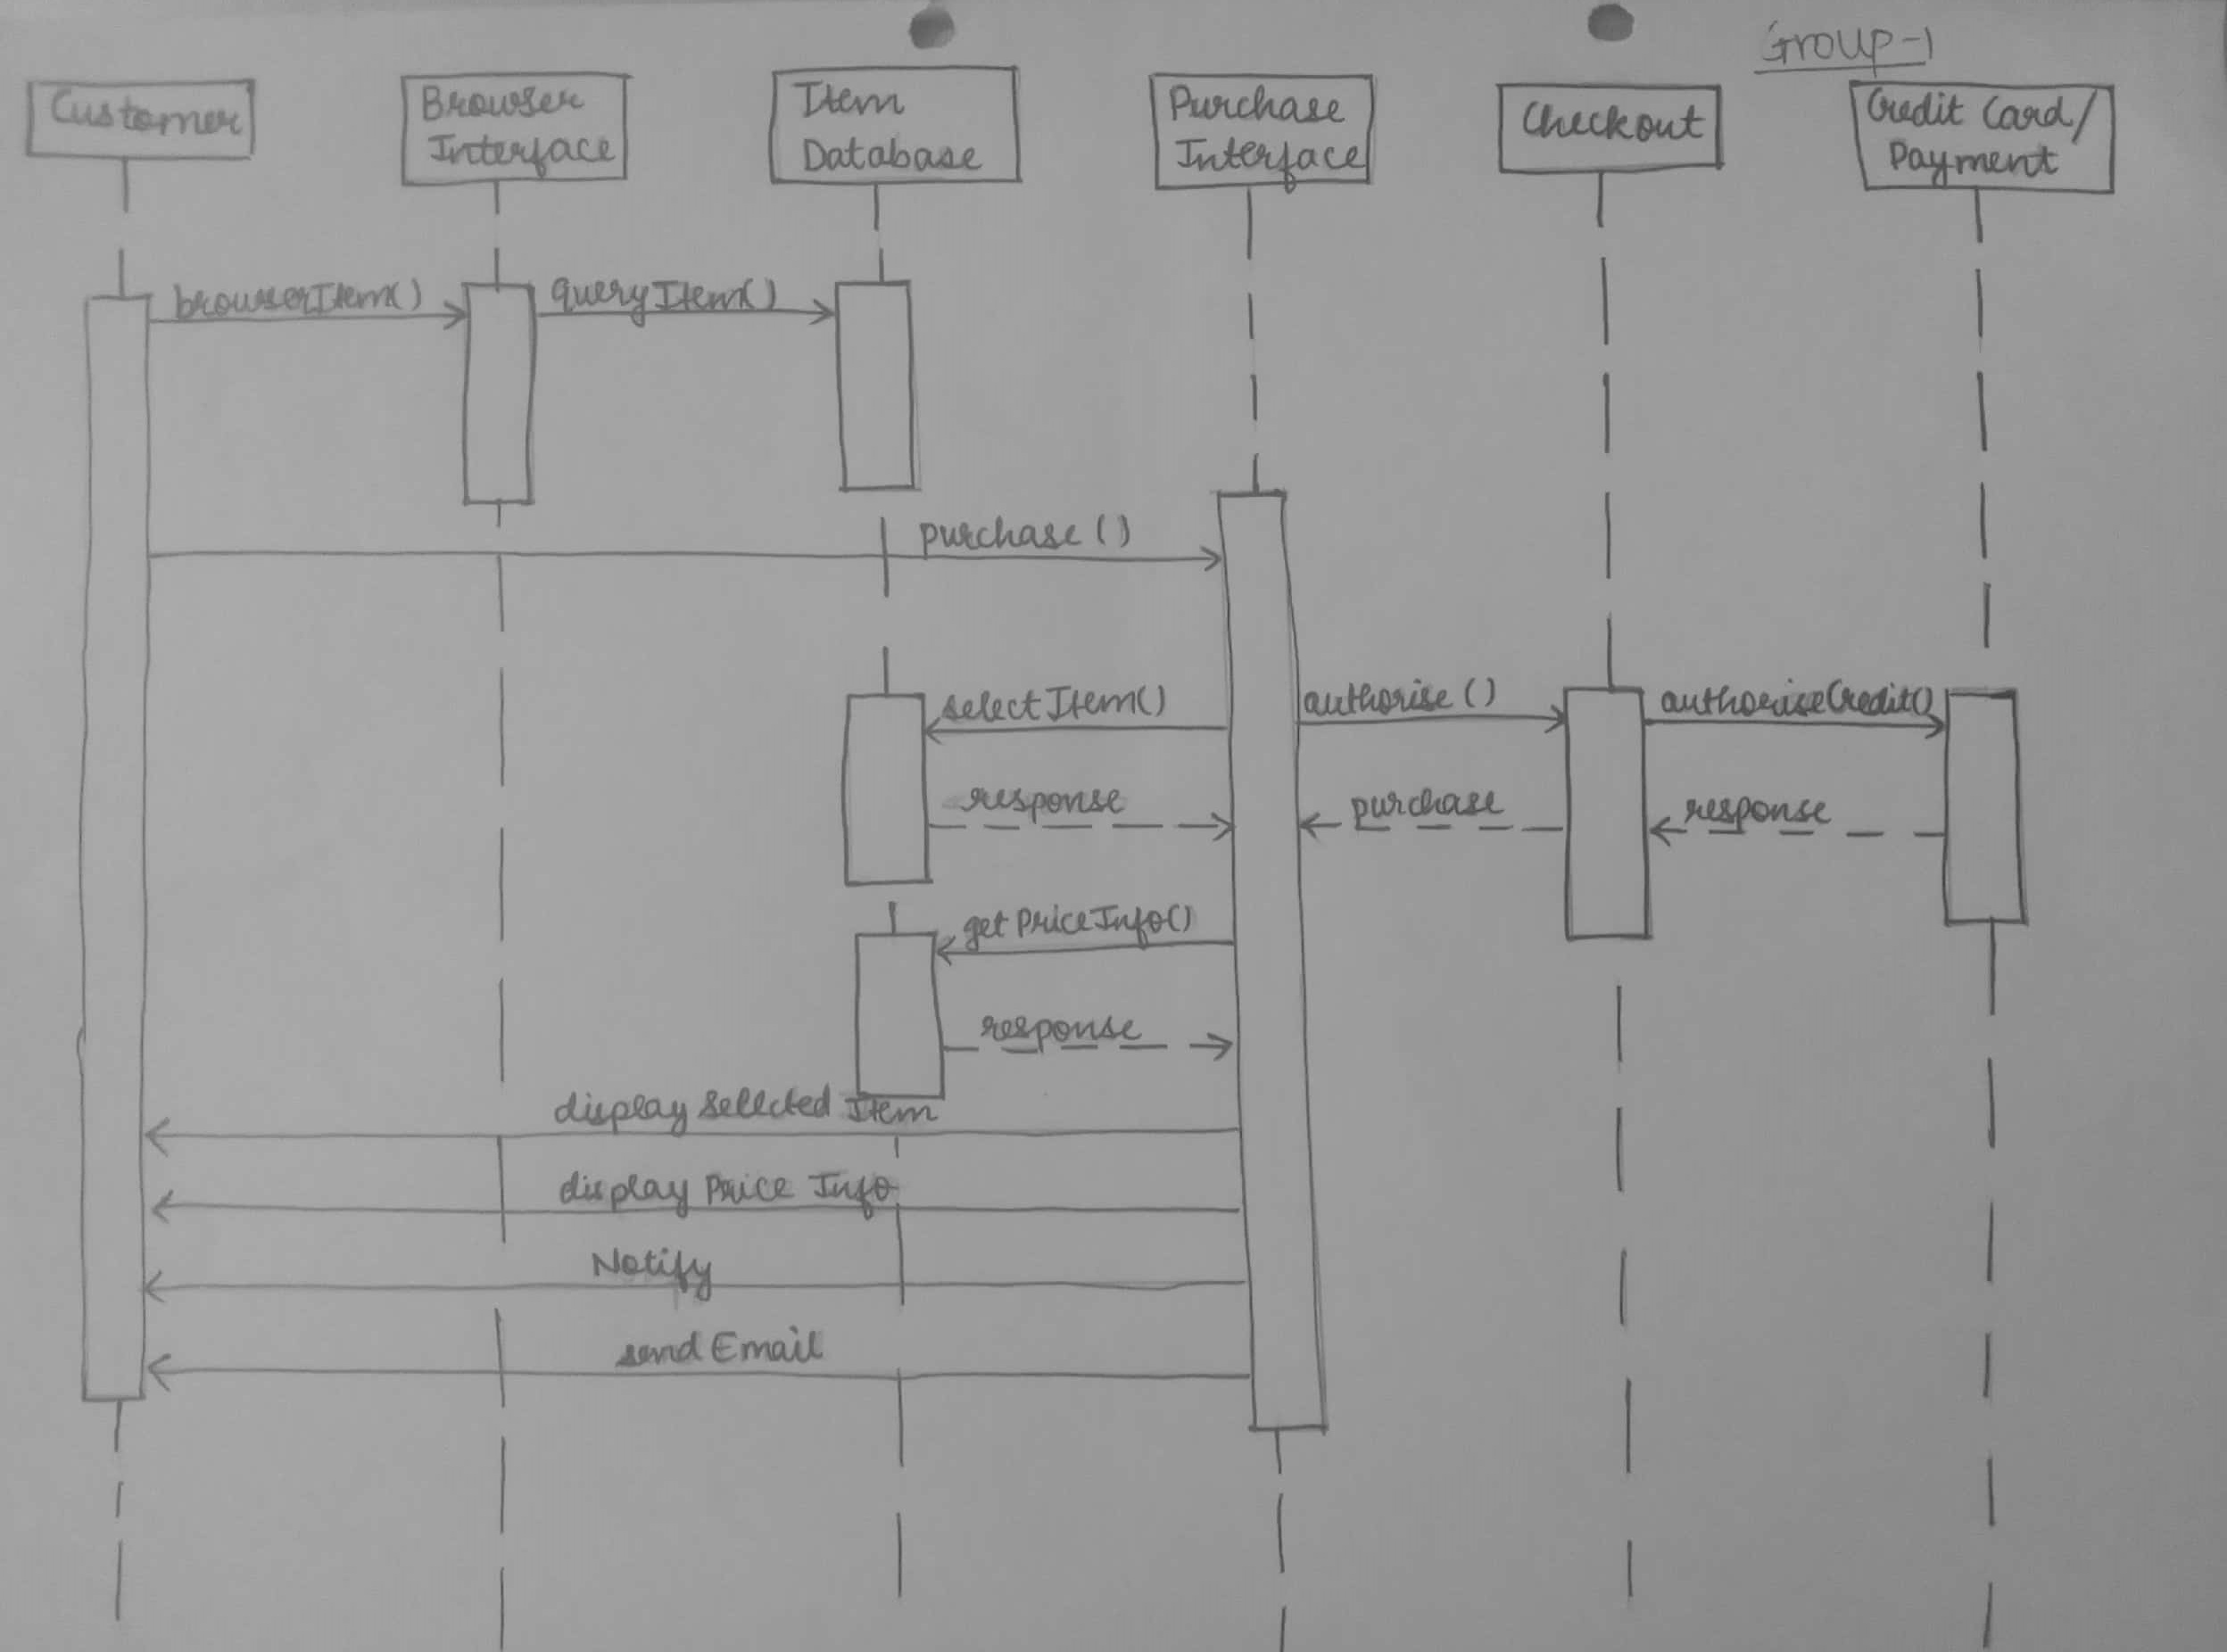 Group-1
Customer
Browser
Interface
Item
Database
Purchase
Interface
Checkout
Credit Card/
Payment
browserItem()
queryItem()
purchase()
selectItem()
authorise()
authoriseCredit()
response
purchase
response
getPriceInfo()
response
display selected Item
display Price Info
Notify
send Email